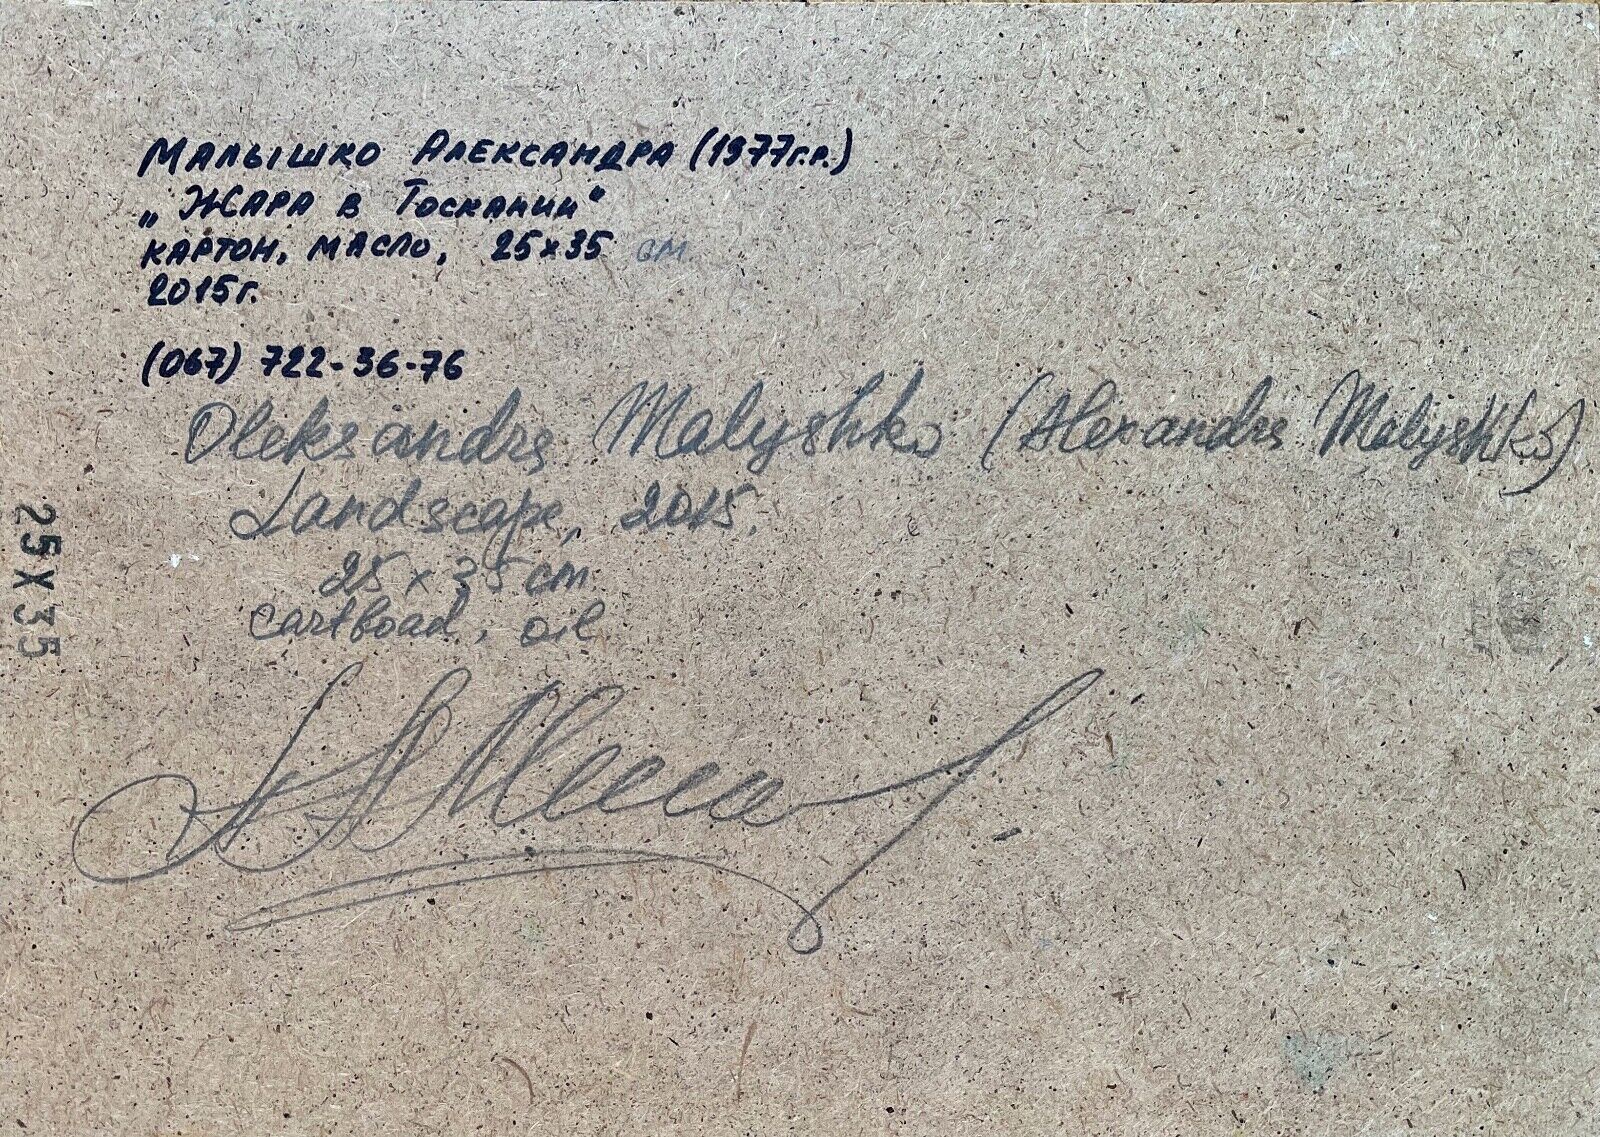 Малышко Александра (1977г.р.)
„Жара в Тоскании“
картон, масло, 25x35 см.
2015г.
(067) 722-36-76
Oleksandra Malyshko (Alexandra Malyshko)
Landscape, 2015.
25 x 35 cm
cartboad, oil
25X35